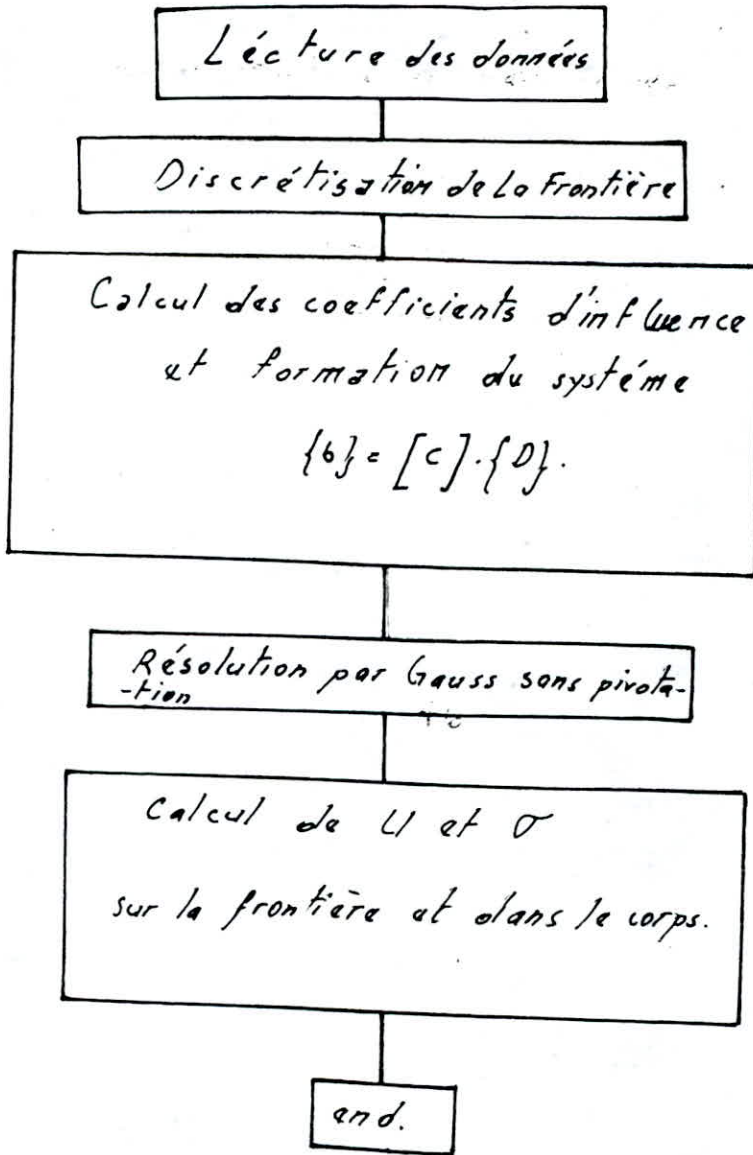 Lécture des données
Discrétisation de La Frontière
Calcul des coefficients d'influence
et formation du systéme
{b} = [C].{D}.
Résolution par Gauss sans pivota-
-tion
Calcul de U et σ
sur la frontière et dans le corps.
end.